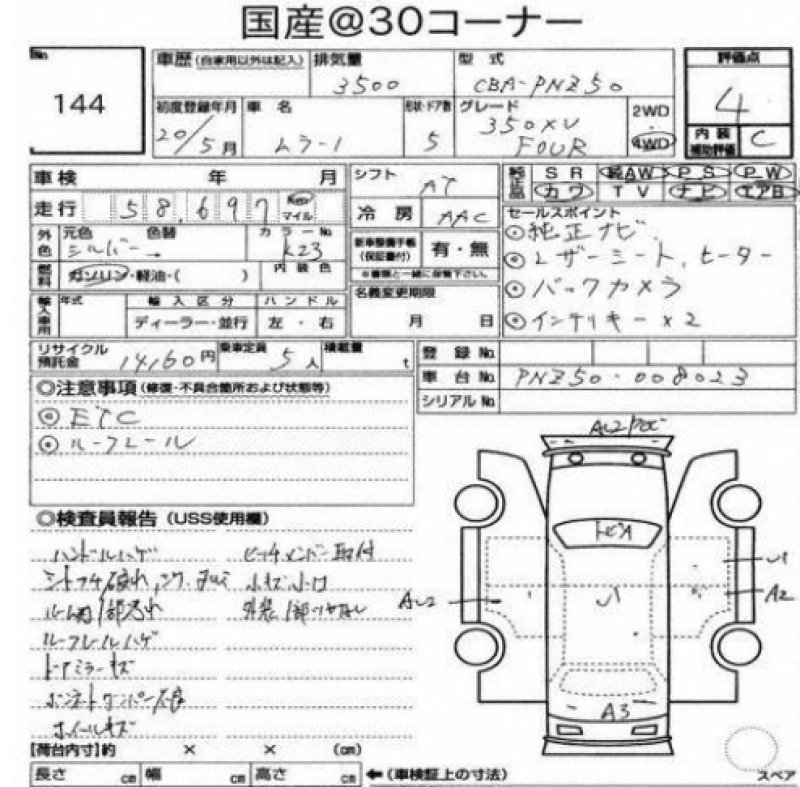 国産@30コーナー
No.
144
車歴(自家用以外は記入)
排気量
3500
型式
CBA-PNZ50
評価点
4
内装
補助評価
C
初度登録年月
20/5月
車名
ムラーノ
形状・ドア数
5
グレード
350XV
FOUR
2WD
4WD
車検 年 月
走行 58,697 Km マイル
シフト
AT
冷房
AAC
純正品
SR 純AW PS PW
カワ TV ナビ エアB
外色
元色
シルバー
色替
カラーNo
K23
燃料
ガソリン・軽油・( )
内装色
新車整備手帳
(保証書付)
有・無
※書類と一緒に保管下さい。
セールスポイント
◎純正ナビ
◎レザーシート、ヒーター
◎バックカメラ
◎インテリキー×2
輸入車用
年式
輸入区分
ハンドル
ディーラー・並行
左・右
名義変更期限
月 日
リサイクル
預託金
14160円
乗車定員
5人
積載量
t
登録No
車台No
PNZ50-008023
シリアルNo
◎注意事項(修復・不具合箇所および状態等)
◎ETC
◎ルーフレール
◎検査員報告(USS使用欄)
ハンドルハゲ
ルーム内1部汚れ
ルーフレールハゲ
ドアミラーキズ
ボンネットダンパー不良
ホイールキズ
ヒッチメンバー取付
小キズ小凹
トビA
AU2
U1
A2
A3
スペア
【荷台内寸】約 × × (cm)
長さ cm 幅 cm 高さ cm
←(車検証上の寸法)